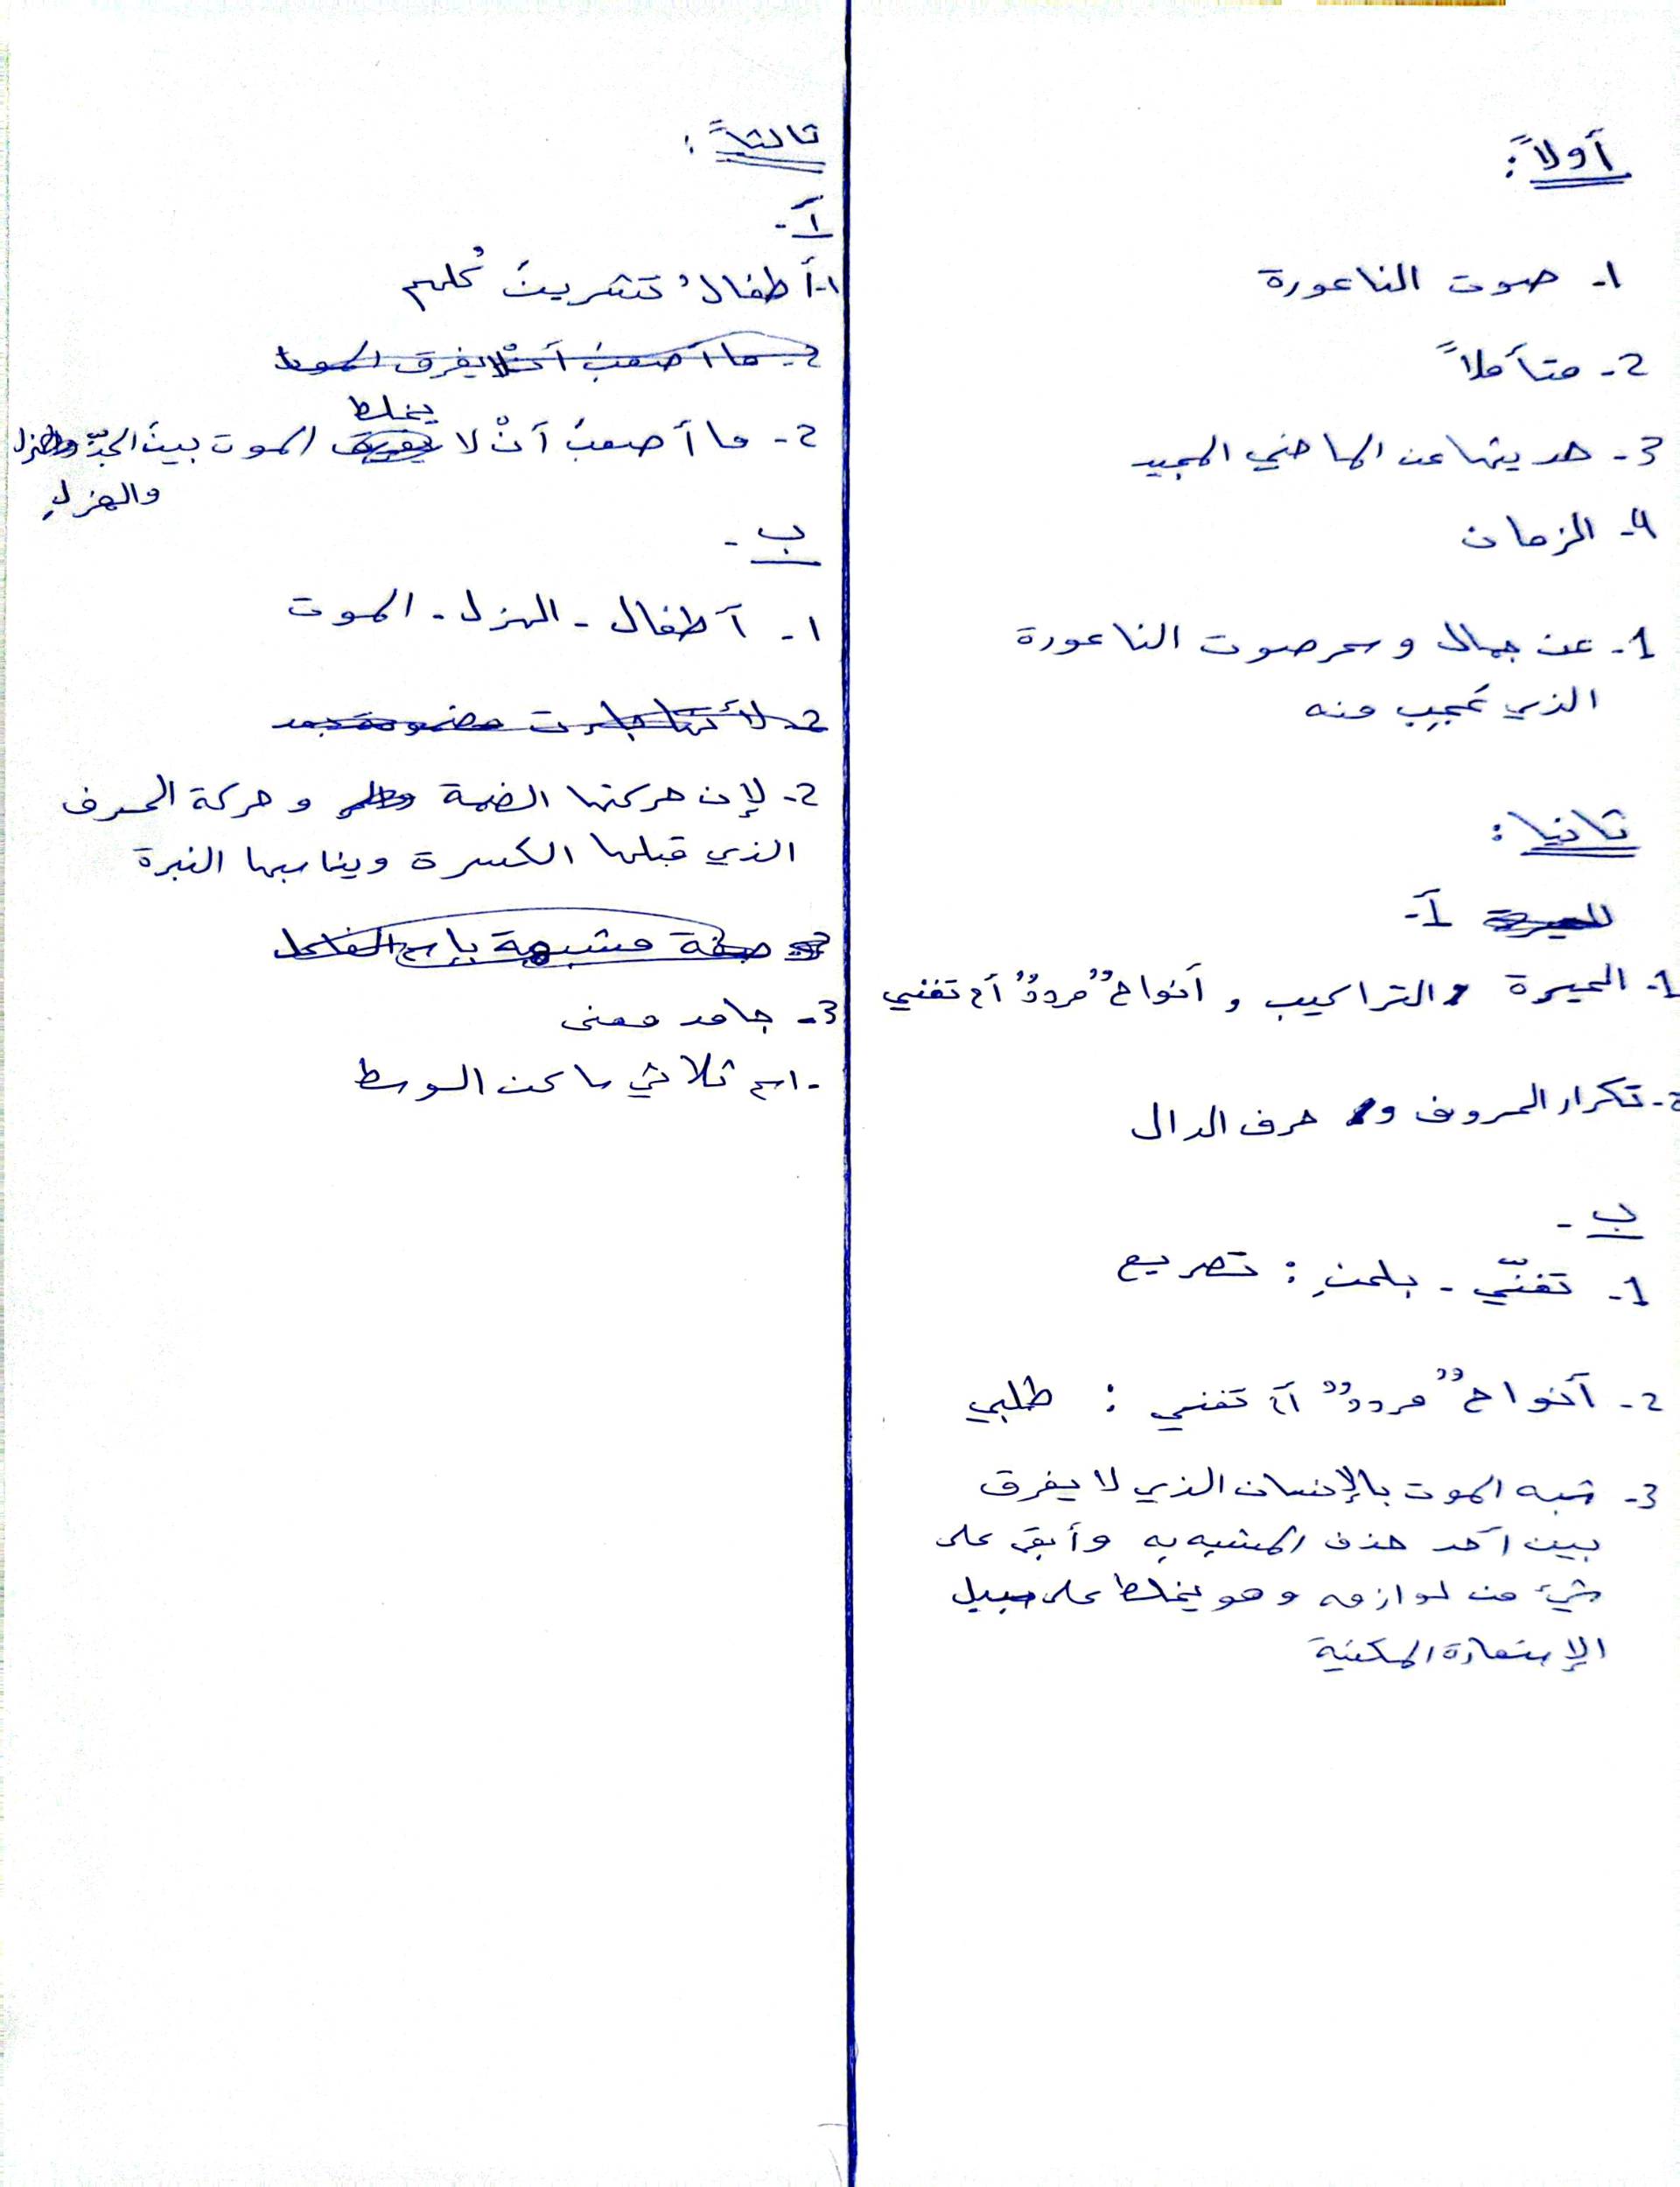 أولاً:
1- صوت الناعورة
2- متأملاً
3- حديثها عن الماضي المجيد
4- الزمان
1- عن جمال وسحر صوت الناعورة
الذي عَجِبِ منه
ثانيا:
أ-
1- الحيرة والتراكيب و أنواح "مردد" أم تغني
2- تكرار الحروف و حرف الدال
ب-
1- تغنّي - بلحنِ: تصريع
2- أنواح "مردد" أم تغني: طلبي
3- شبه الموت بالإنسان الذي لا يفرق
بين أحد حذف المشبه به وأبقى على
شيء من لوازمه وهو يخلط على سبيل
الإستعارة المكنية
ثالثاً:
أ-
1- أطفالُ تشرينَ كُلهم
2- ما أصعبَ أنْ لا يفرق الموت
2- ما أصعبَ أنْ لا يخلط الموت بينَ الجدِّ
والهزلِ
ب-
1- أطفال - الهزل - الموت
2- لأنها جاءت مضمومة بعد
2- لإن حركتها الضمة و حركة الحرف
الذي قبلها الكسرة ويناسبها النبرة
3- صفة مشبهة باسم الفاعل
3- جامد معنى
- اسم ثلاثي ساكن الوسط